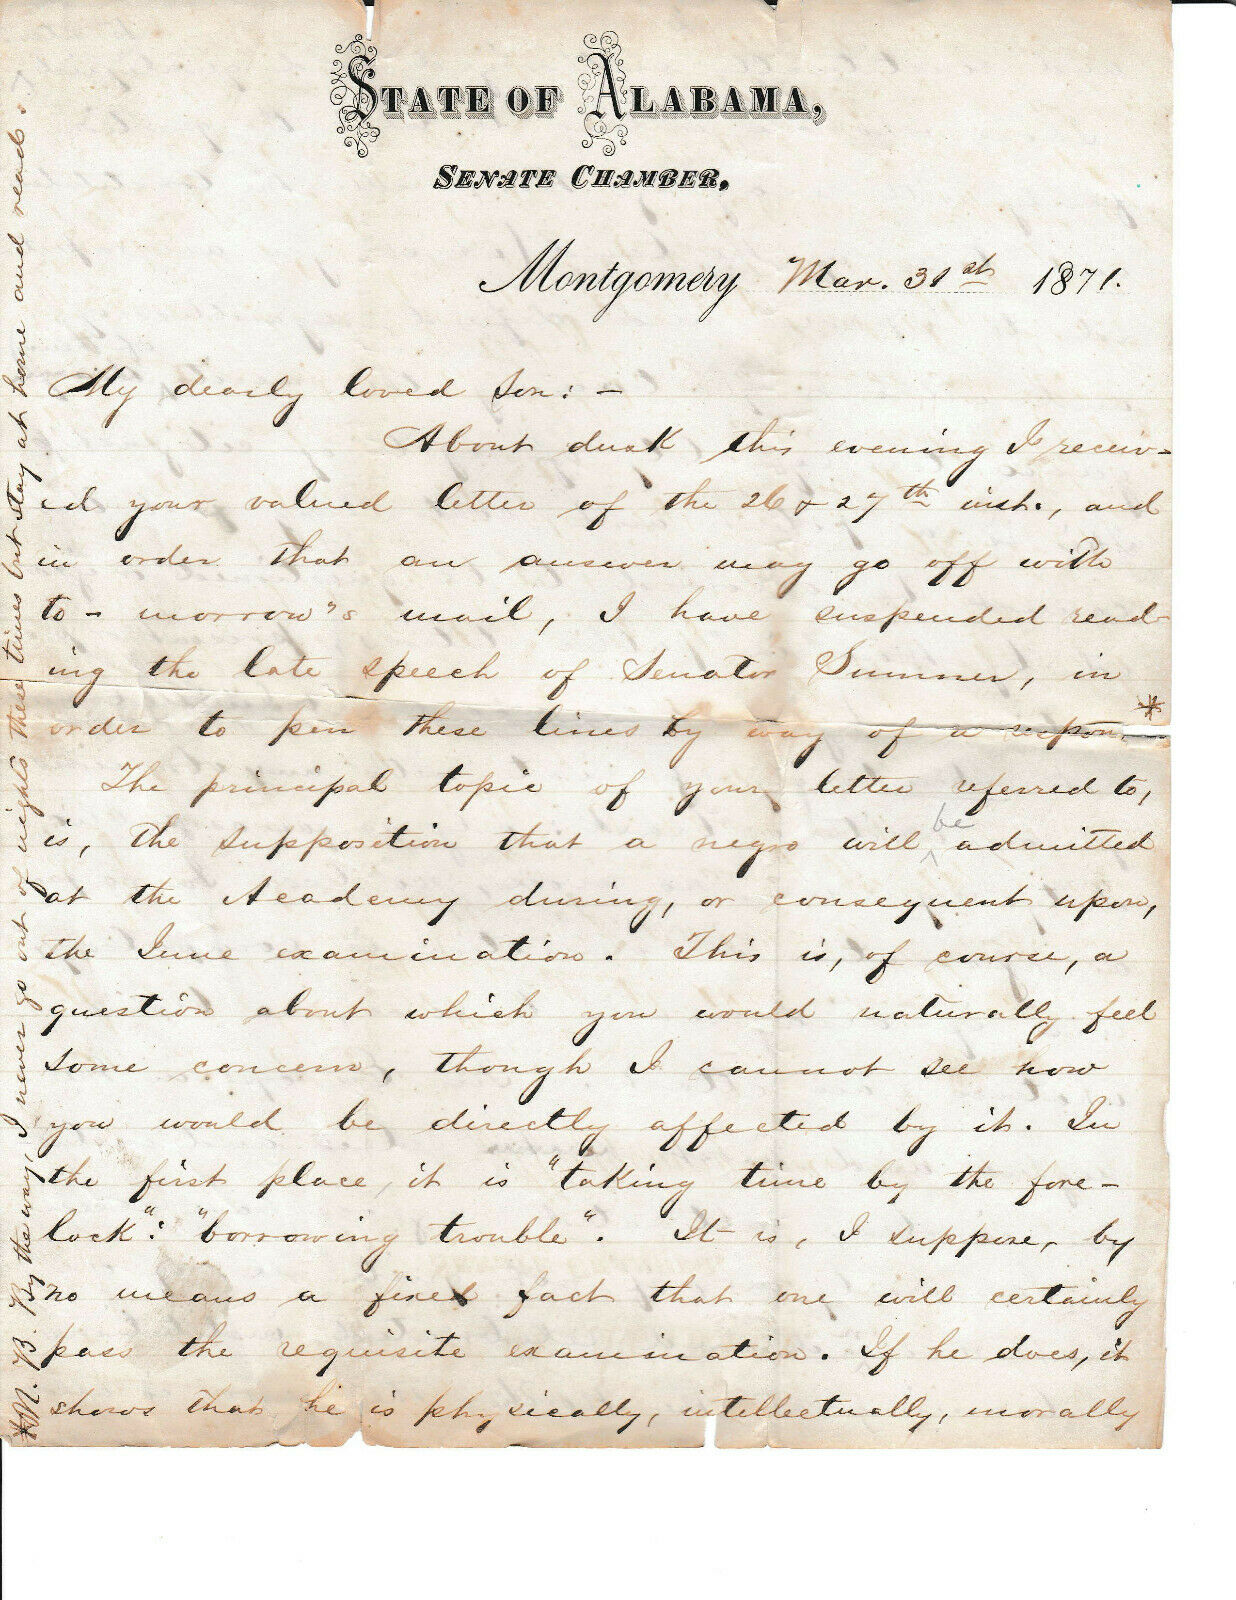 STATE OF ALABAMA,
SENATE CHAMBER,
Montgomery Mar. 31st 1871.
My dearly loved Son: -
About dusk this evening I receiv-
ed your valued letter of the 26 & 27th inst., and
in order that an answer may go off with
to-morrow's mail, I have suspended read-
ing the late speech of Senator Sumner, in *
order to pen these lines by way of a respon
The principal topic of your letter referred to,
is, the supposition that a negro will be admitted
at the Academy during, or consequent upon,
the June examination. This is, of course, a
question about which you would naturally feel
some concern, though I cannot see how
you would be directly affected by it. In
the first place, it is "taking time by the fore-
lock": "borrowing trouble". It is, I suppose, by
no means a fixed fact that one will certainly
pass the requisite examination. If he does, it
shows that he is physically, intellectually, morally
*N.B. By the way, I never go out of nights these times but stay at home and read.